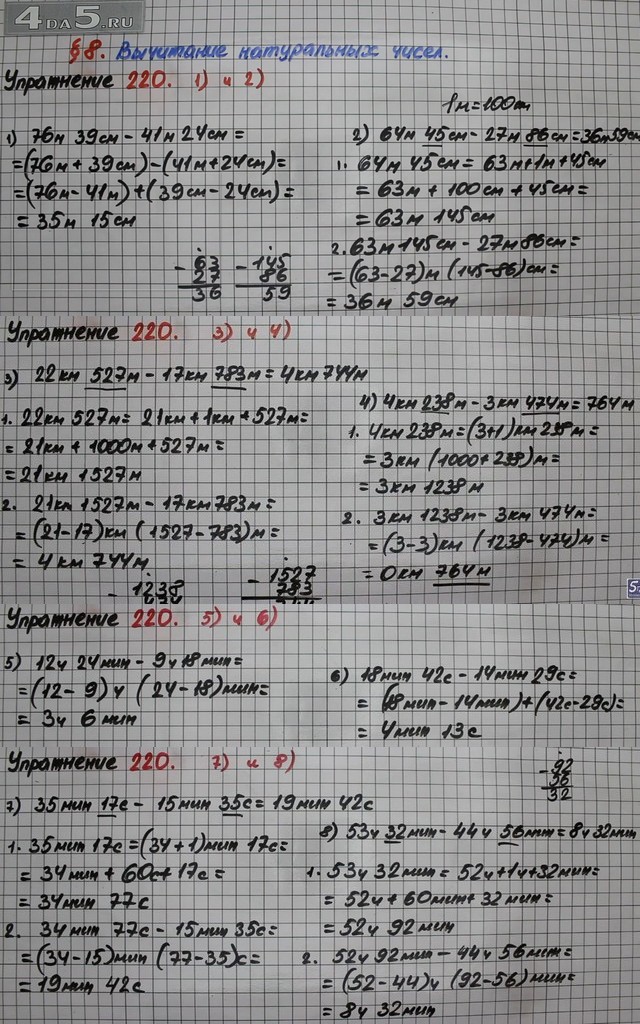 4DA5.RU
§8. Вычитание натуральных чисел.
Упражнение 220. 1) и 2)
1м=100см
1) 76м 39см - 41м 24см =
=(76м+39см)-(41м+24см)=
=(76м-41м)+(39см-24см)=
= 35м 15см
2) 64м 45см - 27м 86см=36м59см
1. 64м 45см = 63м+1м+45см
= 63м + 100см + 45см =
= 63м 145см
2. 63м 145см - 27м 86см=
=(63-27)м (145-86)см=
= 36м 59см
- 63
27
36
- 145
86
59
Упражнение 220. 3) и 4)
3) 22км 527м - 17км 783м = 4км 744м
1. 22км 527м= 21км+1км+527м=
= 21км + 1000м+527м=
=21км 1527м
2. 21км 1527м - 17км783м=
=(21-17)км (1527-783)м=
= 4км 744м
- 1238
- 1527
783
4) 4км 238м - 3км 474м=764м
1. 4км 238м=(3+1)км 238м=
=3км (1000+238)м=
= 3км 1238м
2. 3км 1238м- 3км 474м=
=(3-3)км (1238-474)м=
=0км 764м
Упражнение 220. 5) и 6)
5) 12ч 24мин - 9ч 18мин=
=(12-9)ч (24-18)мин=
= 3ч 6мин
6) 18мин 42с - 14мин 29с=
= (18мин-14мин)+(42с-29с)=
= 4мин 13с
Упражнение 220. 7) и 8)
- 92
56
32
7) 35мин 17с - 15мин 35с=19мин 42с
1. 35мин 17с =(34+1)мин 17с=
= 34мин + 60с+17с =
= 34мин 77с
2. 34мин 77с - 15мин 35с=
=(34-15)мин (77-35)с=
=19мин 42с
8) 53ч 32мин-44ч 56мин=8ч32мин
1. 53ч 32мин=52ч+1ч+32мин=
= 52ч+60мин+32мин=
= 52ч 92мин
2. 52ч 92мин-44ч 56мин=
= (52-44)ч (92-56)мин=
= 8ч 32мин